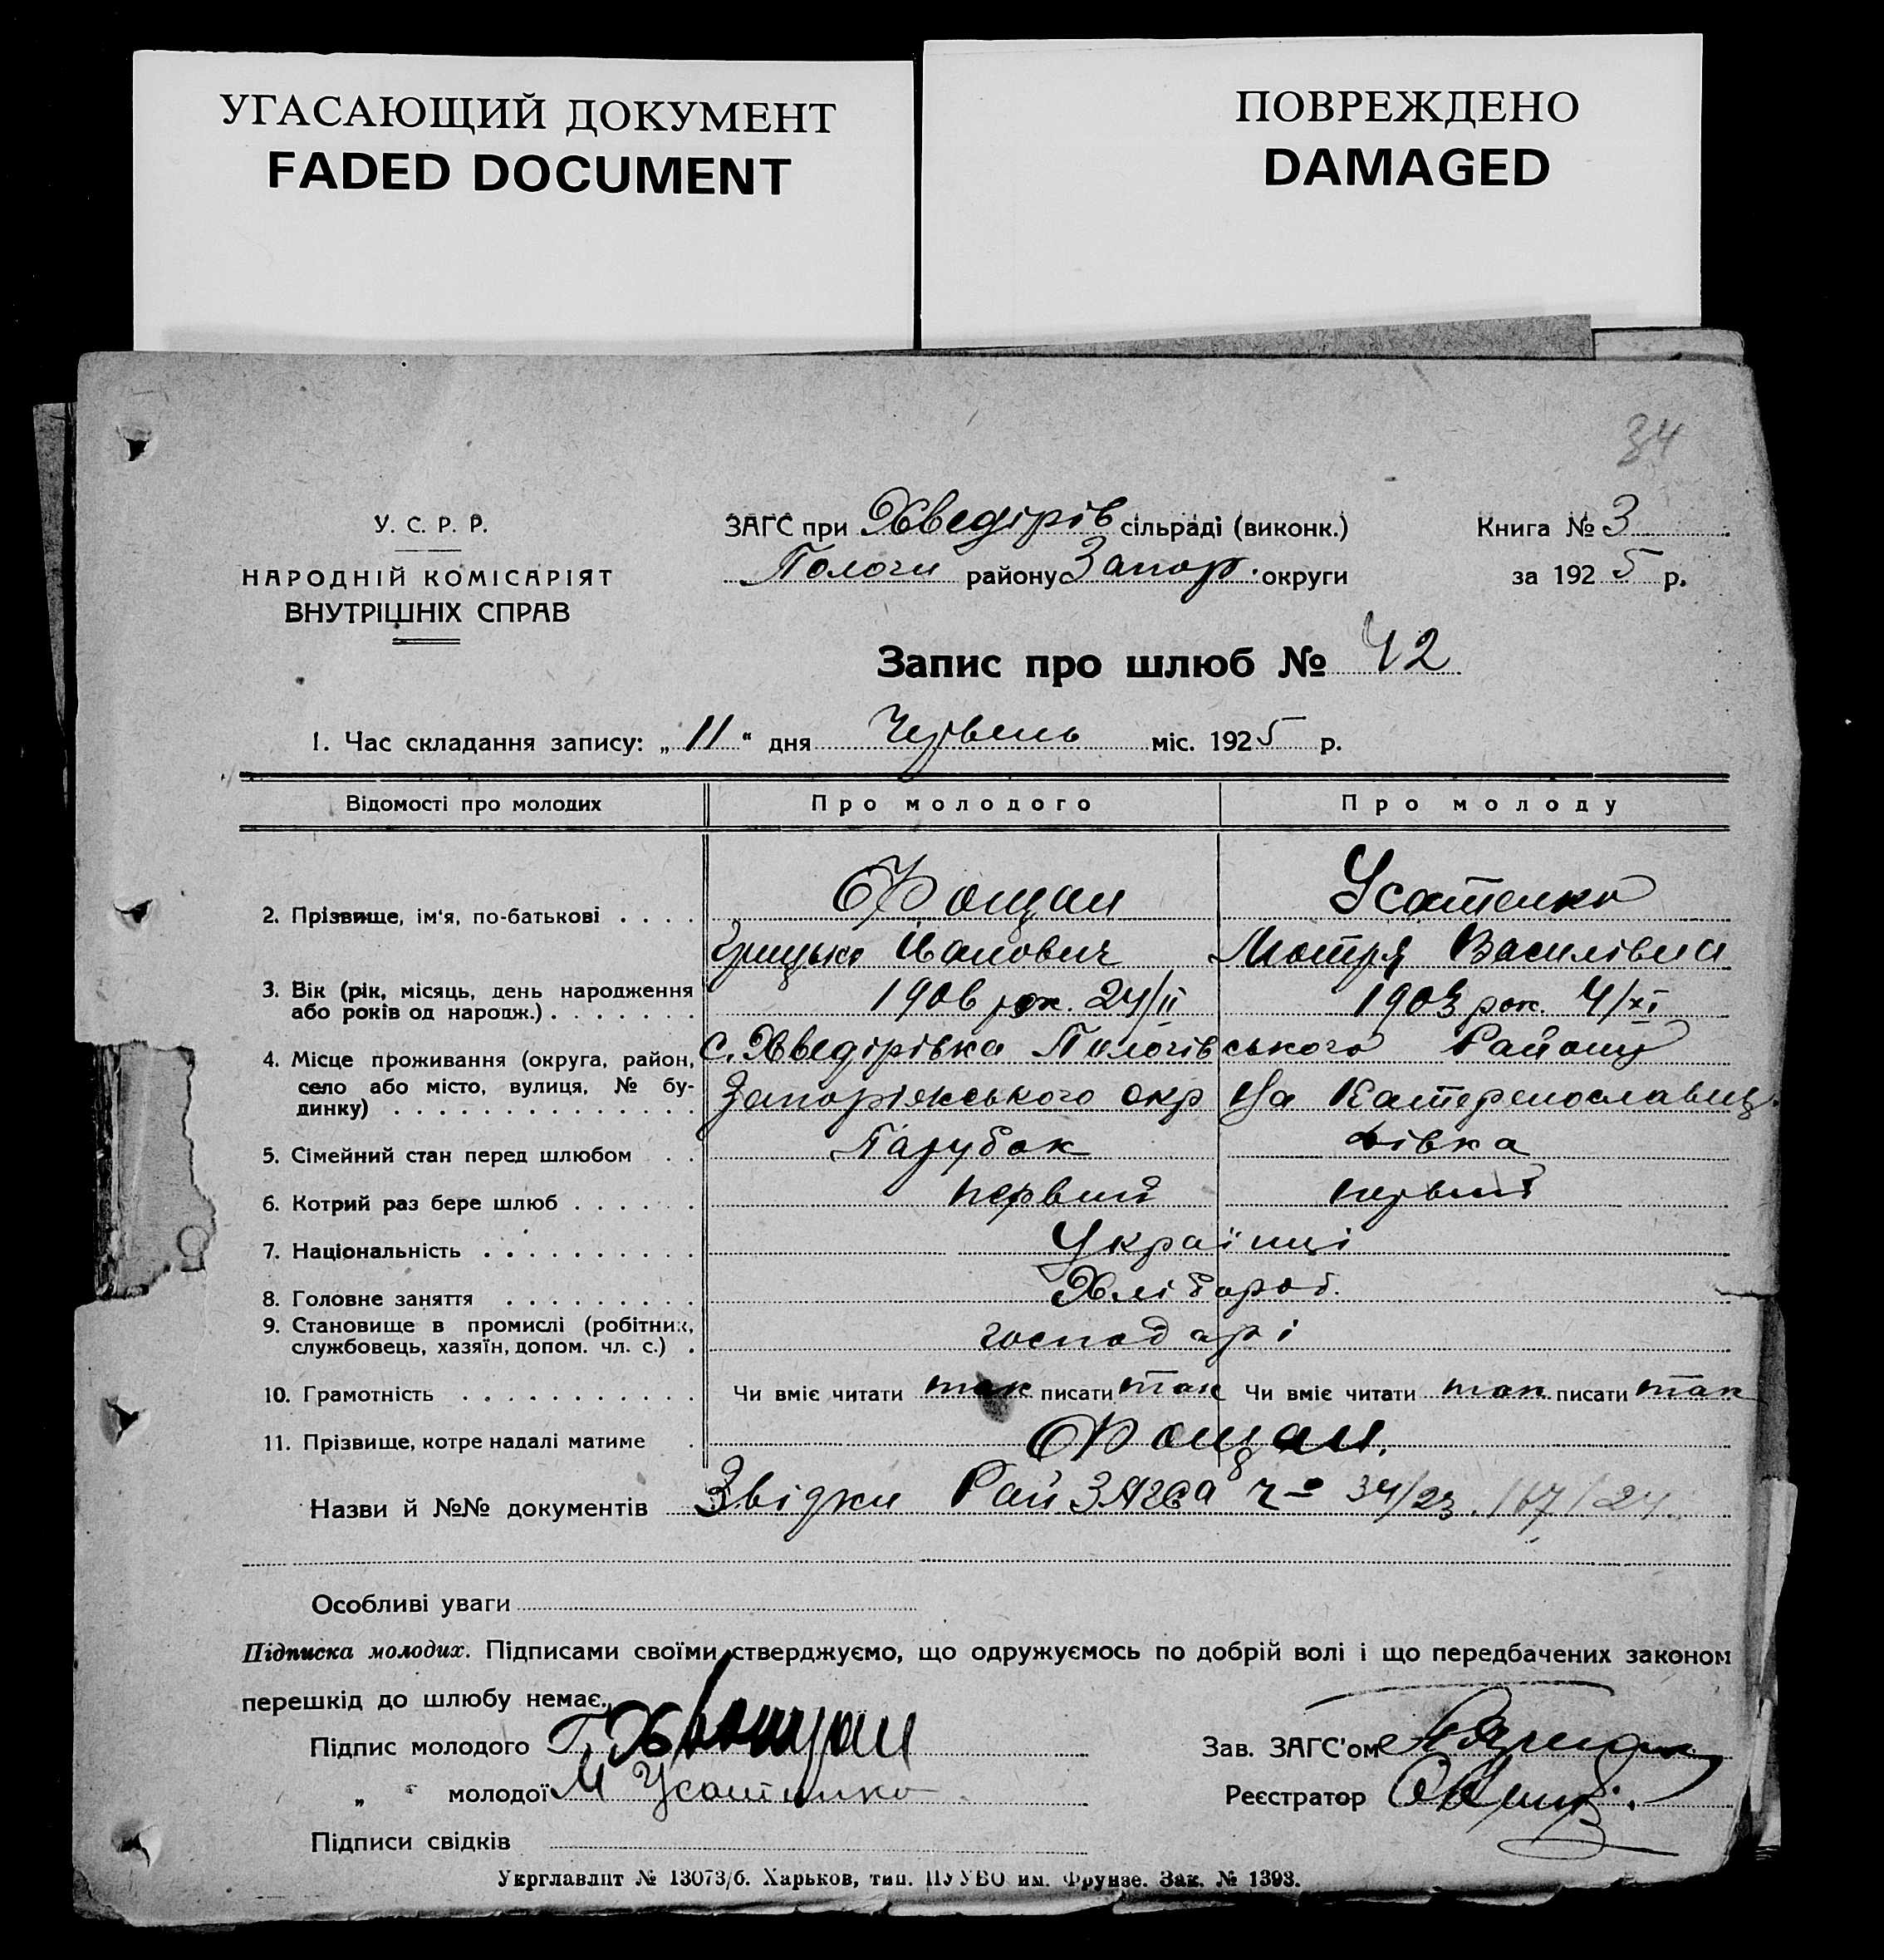 УГАСАЮЩИЙ ДОКУМЕНТ
FADED DOCUMENT
ПОВРЕЖДЕНО
DAMAGED
34
У. С. Р. Р.
НАРОДНІЙ КОМІСАРІЯТ
ВНУТРІШНІХ СПРАВ
ЗАГС при Хведірів сільраді (виконк.)
Пологи району Запор. округи
Книга № 3
за 1925 р.
Запис про шлюб № 42
1. Час складання запису: „ 11 “ дня Червень міс. 1925 р.
Відомості про молодих Про молодого Про молоду
2. Прізвище, ім'я, по-батькові . . . . Фощан Усатенко
Грицько Іванович Мотря Василівна
3. Вік (рік, місяць, день народження
або років од народж.) . . . . . . . 1906 рок. 24/II 1903 рок. 4/XI
4. Місце проживання (округа, район, с. Хведірівка Пологівського Району
село або місто, вулиця, № бу-
динку) . . . . . . . . . . . . . . Запоріжського окр на Катеренославщ.
5. Сімейний стан перед шлюбом . . Парубок Дівка
6. Котрий раз бере шлюб . . . . . . первий первий
7. Національність . . . . . . . . . . Українці
8. Головне заняття . . . . . . . . . Хлібороб.
9. Становище в промислі (робітник,
службовець, хазяїн, допом. чл. с.) . господарі
10. Грамотність . . . . . . . . . . . Чи вміє читати так писати так Чи вміє читати так писати так
11. Прізвище, котре надалі матиме . Фощан.
Назви й №№ документів Звідки Рай ЗАГСа 34/23. 167/24.
Особливі уваги
Підписка молодих. Підписами своїми стверджуємо, що одружуємось по добрій волі і що передбачених законом
перешкід до шлюбу немає.
Підпис молодого Г. Хвощан
„ молодої М Усатенко
Підписи свідків
Зав. ЗАГС'ом
Реєстратор
Укрглавлит № 13073/б. Харьков, тип. ПУУВО им. Фрунзе. Зак. № 1393.